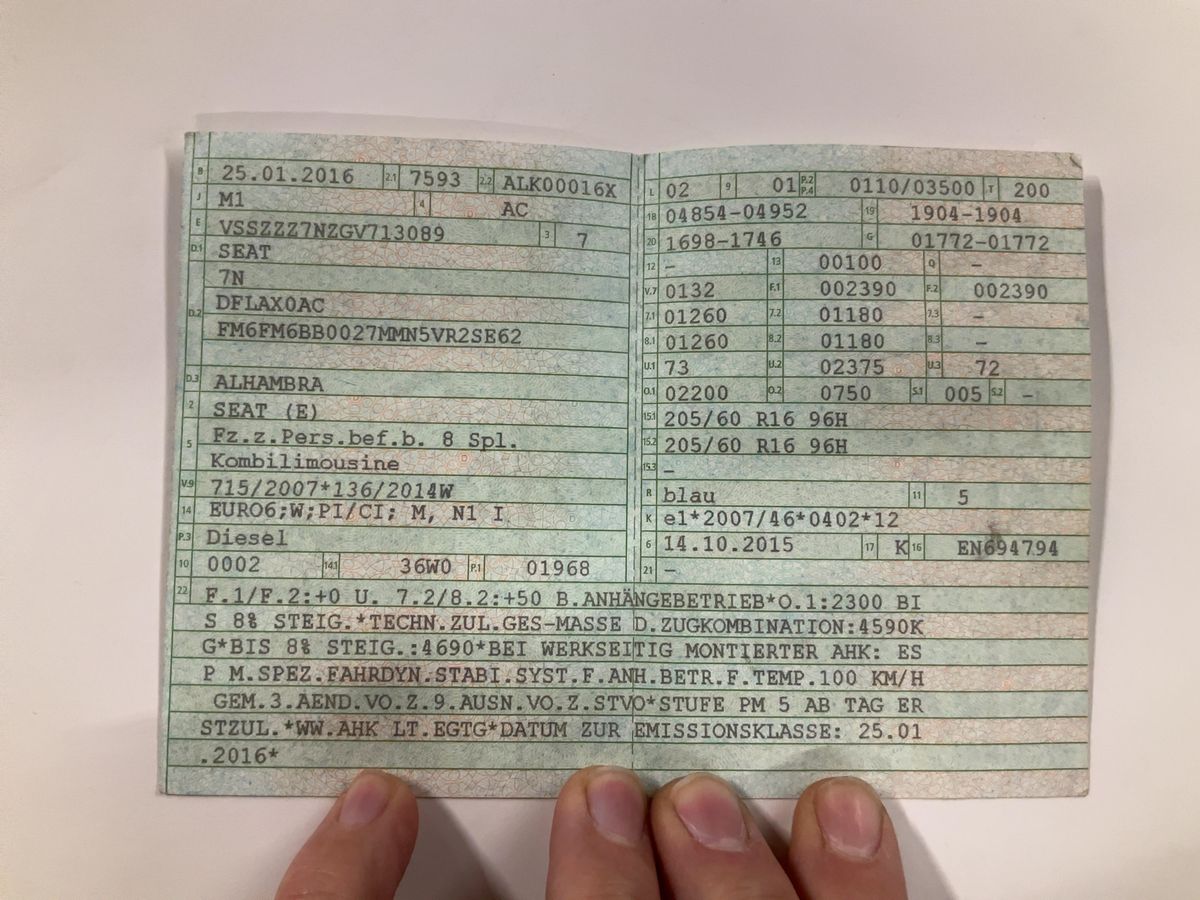 B 25.01.2016 2.1 7593 2.2 ALK00016X
J M1 4 AC
E VSSZZZ7NZGV713089 3 7
D.1 SEAT
7N
D.2 DFLAX0AC
FM6FM6BB0027MMN5VR2SE62
D.3 ALHAMBRA
2 SEAT (E)
5 Fz.z.Pers.bef.b. 8 Spl.
Kombilimousine
V.9 715/2007*136/2014W
14 EURO6;W;PI/CI; M, N1 I
P.3 Diesel
10 0002 14.1 36W0 P.1 01968
L 02 9 01 P.2 P.4 0110/03500 T 200
18 04854-04952 19 1904-1904
20 1698-1746 G 01772-01772
12 – 13 00100 Q –
V.7 0132 F.1 002390 F.2 002390
7.1 01260 7.2 01180 7.3 –
8.1 01260 8.2 01180 8.3 –
U.1 73 U.2 02375 U.3 72
O.1 02200 O.2 0750 S.1 005 S.2 –
15.1 205/60 R16 96H
15.2 205/60 R16 96H
15.3 –
R blau 11 5
K e1*2007/46*0402*12
6 14.10.2015 17 K 16 EN694794
21 –
22 F.1/F.2:+0 U. 7.2/8.2:+50 B.ANHÄNGEBETRIEB*O.1:2300 BI
S 8% STEIG.*TECHN.ZUL.GES-MASSE D.ZUGKOMBINATION:4590K
G*BIS 8% STEIG.:4690*BEI WERKSEITIG MONTIERTER AHK: ES
P M.SPEZ.FAHRDYN.STABI.SYST.F.ANH.BETR.F.TEMP.100 KM/H
GEM.3.AEND.VO.Z.9.AUSN.VO.Z.STVO*STUFE PM 5 AB TAG ER
STZUL.*WW.AHK LT.EGTG*DATUM ZUR EMISSIONSKLASSE: 25.01
.2016*